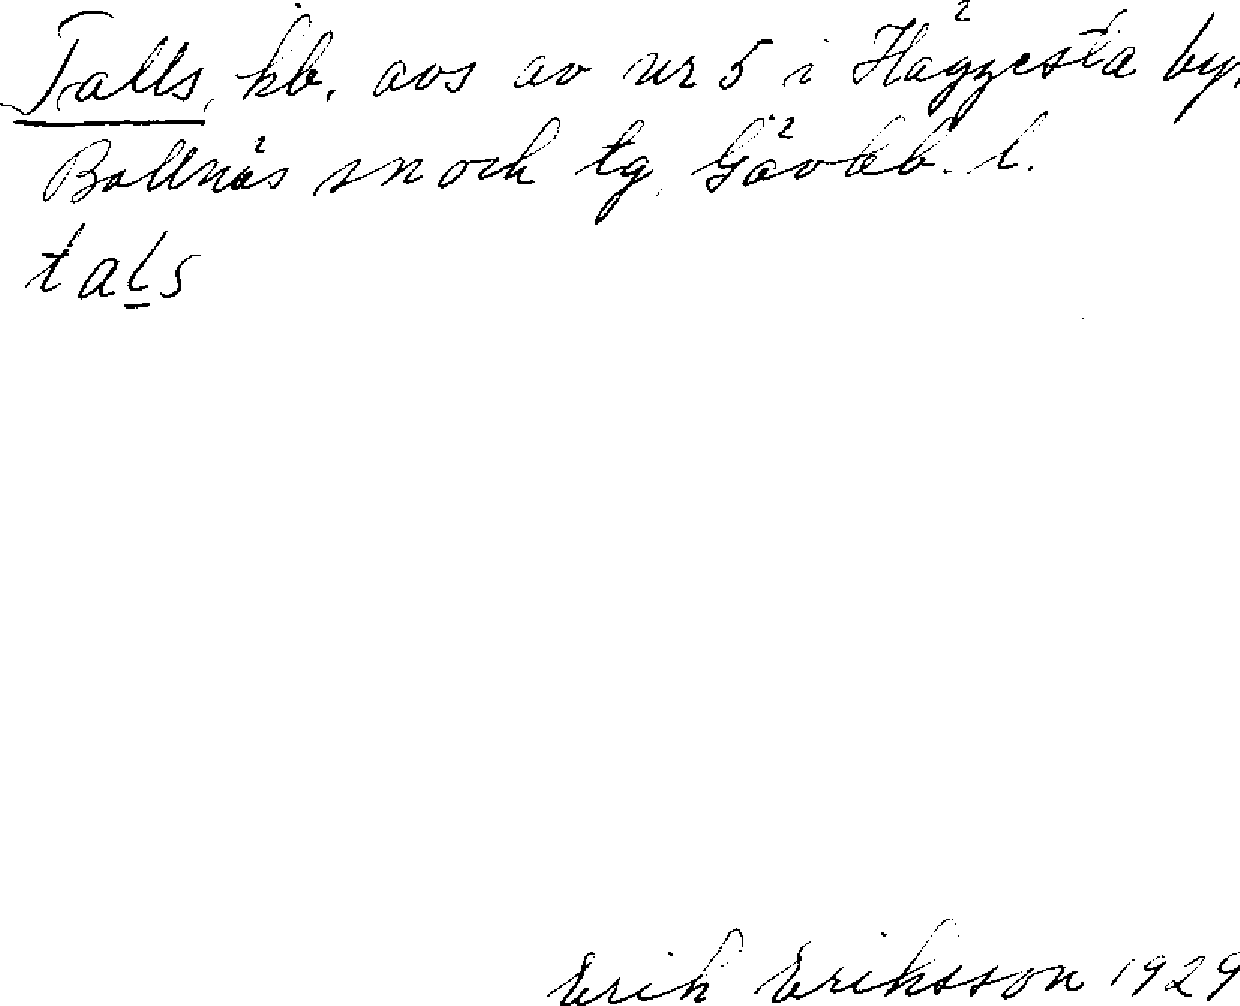 Talls, kb. avs av nr 5 i Häggesta by.
Bollnäs sn och tg. Gävleb. l.
tals
Erik Eriksson 1929